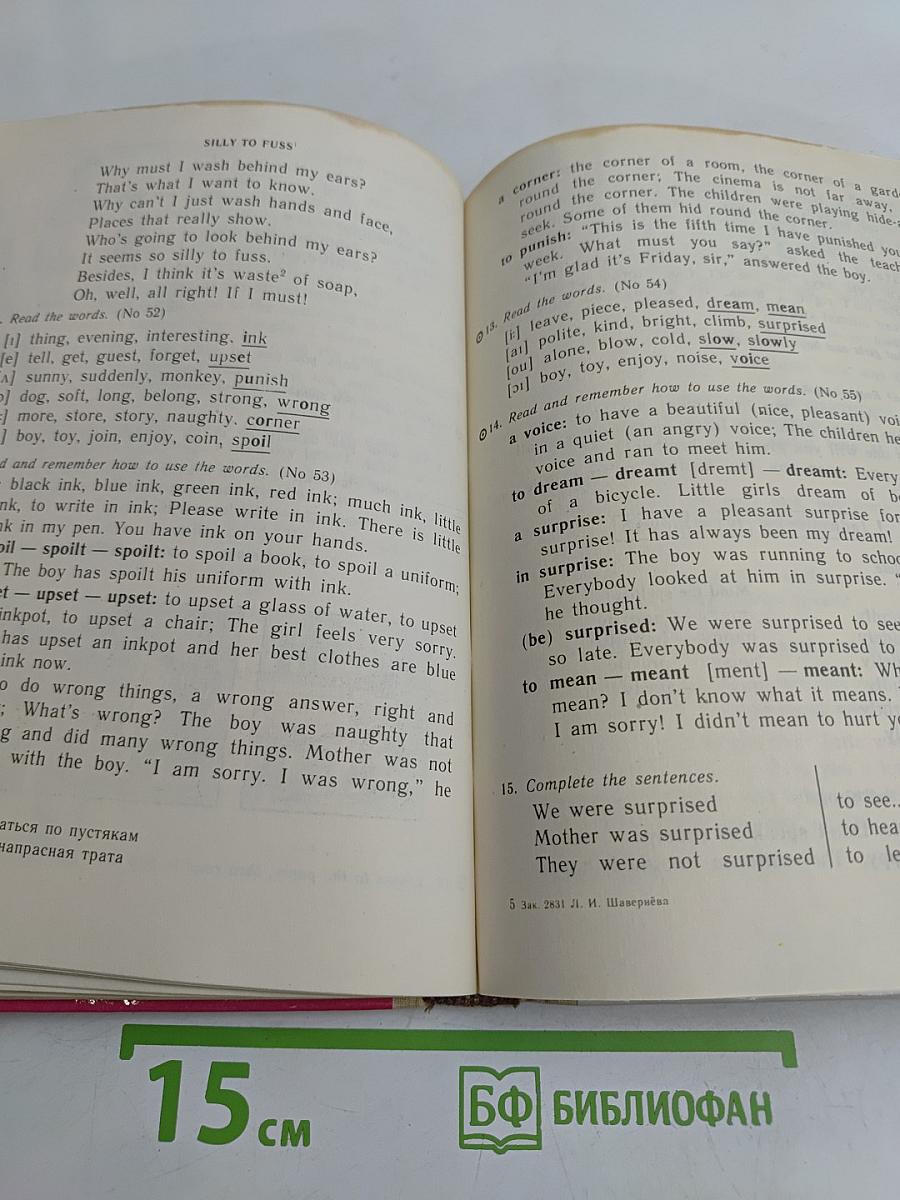 SILLY TO FUSS¹
Why must I wash behind my ears?
That's what I want to know.
Why can't I just wash hands and face,
Places that really show.
Who's going to look behind my ears?
It seems so silly to fuss.
Besides, I think it's waste² of soap,
Oh, well, all right! If I must!
. Read the words. (No 52)
[ɪ] thing, evening, interesting, ink
[e] tell, get, guest, forget, upset
[ʌ] sunny, suddenly, monkey, punish
] dog, soft, long, belong, strong, wrong
] more, store, story, naughty, corner
] boy, toy, join, enjoy, coin, spoil
d and remember how to use the words. (No 53)
: black ink, blue ink, green ink, red ink; much ink, little
nk, to write in ink; Please write in ink. There is little
nk in my pen. You have ink on your hands.
oil — spoilt — spoilt: to spoil a book, to spoil a uniform;
The boy has spoilt his uniform with ink.
et — upset — upset: to upset a glass of water, to upset
inkpot, to upset a chair; The girl feels very sorry.
has upset an inkpot and her best clothes are blue
ink now.
o do wrong things, a wrong answer, right and
; What's wrong? The boy was naughty that
g and did many wrong things. Mother was not
with the boy. "I am sorry. I was wrong," he
аться по пустякам
напрасная трата
a corner: the corner of a room, the corner of a gard
round the corner; The cinema is not far away,
round the corner. The children were playing hide-a
seek. Some of them hid round the corner.
to punish: "This is the fifth time I have punished you
week. What must you say?" asked the teach
"I'm glad it's Friday, sir," answered the boy.
13. Read the words. (No 54)
[i:] leave, piece, pleased, dream, mean
[aɪ] polite, kind, bright, climb, surprised
[ou] alone, blow, cold, slow, slowly
[ɔɪ] boy, toy, enjoy, noise, voice
14. Read and remember how to use the words. (No 55)
a voice: to have a beautiful (nice, pleasant) voi
in a quiet (an angry) voice; The children he
voice and ran to meet him.
to dream — dreamt [dremt] — dreamt: Every
of a bicycle. Little girls dream of be
a surprise: I have a pleasant surprise for
surprise! It has always been my dream!
in surprise: The boy was running to schoo
Everybody looked at him in surprise. "
he thought.
(be) surprised: We were surprised to see
so late. Everybody was surprised to
to mean — meant [ment] — meant: Wh
mean? I don't know what it means.
I am sorry! I didn't mean to hurt yo
15. Complete the sentences.
We were surprised to see..
Mother was surprised to hea
They were not surprised to le
5 Зак. 2831 Л. И. Шавернёва
15 см
БФ БИБЛИОФАН